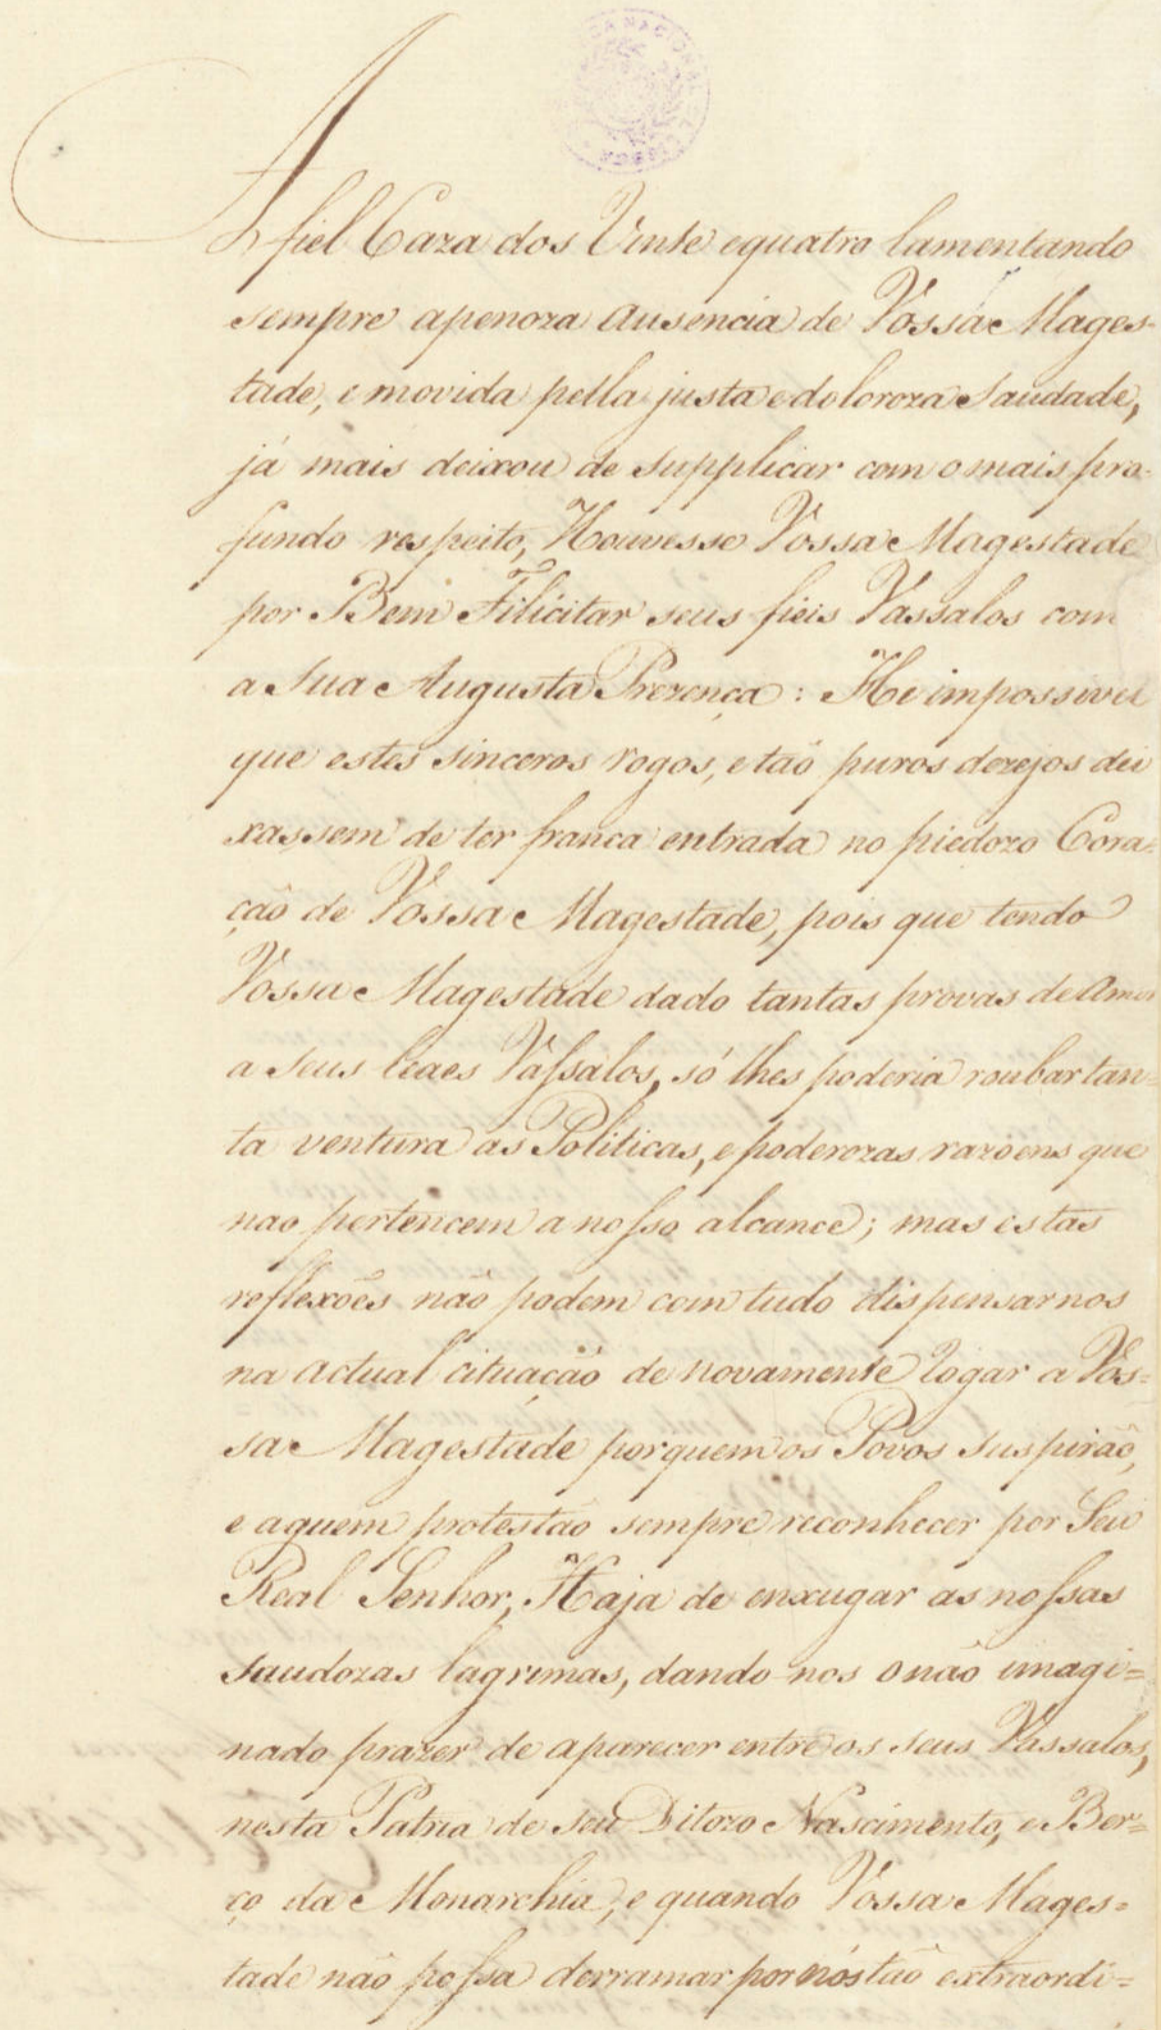 A fiel Caza dos Vinte equatro lamentando
sempre apenoza ausencia de Vossa Mages-
tade, e movida pella justa edoloroza Saudade,
já mais deixou de Supplicar com o mais pro-
fundo respeito, Houvesse Vossa Magestade
por Bem Filicitar seus fieis Vassalos com
a Sua Augusta Prezença : He impossivel
que estes sinceros rogos, e tão puros dezejos dei
xassem de ter franca entrada no piedozo Cora=
ção de Vossa Magestade, pois que tendo
Vossa Magestade dado tantas provas de Amor
a Seus leaes Vassalos, só lhes poderia roubar tan=
ta ventura as Politicas, e poderozas razoens que
nao pertencem a nosso alcance; mas estas
reflexões não podem com tudo dispensarnos
na actual cituação de novamente rogar a Vos=
sa Magestade porquem os Povos Suspirão,
e aquem protestão sempre reconhecer por Seu
Real Senhor, Haja de enxugar as nossas
Saudozas lagrimas, dando-nos o não imagi=
nado prazer de aparecer entre os seus Vassalos,
nesta Patria de seu Ditozo Nascimento, e Ber=
ço da Monarchia, e quando Vossa Mages=
tade não possa derramar por nós tão extraordi=